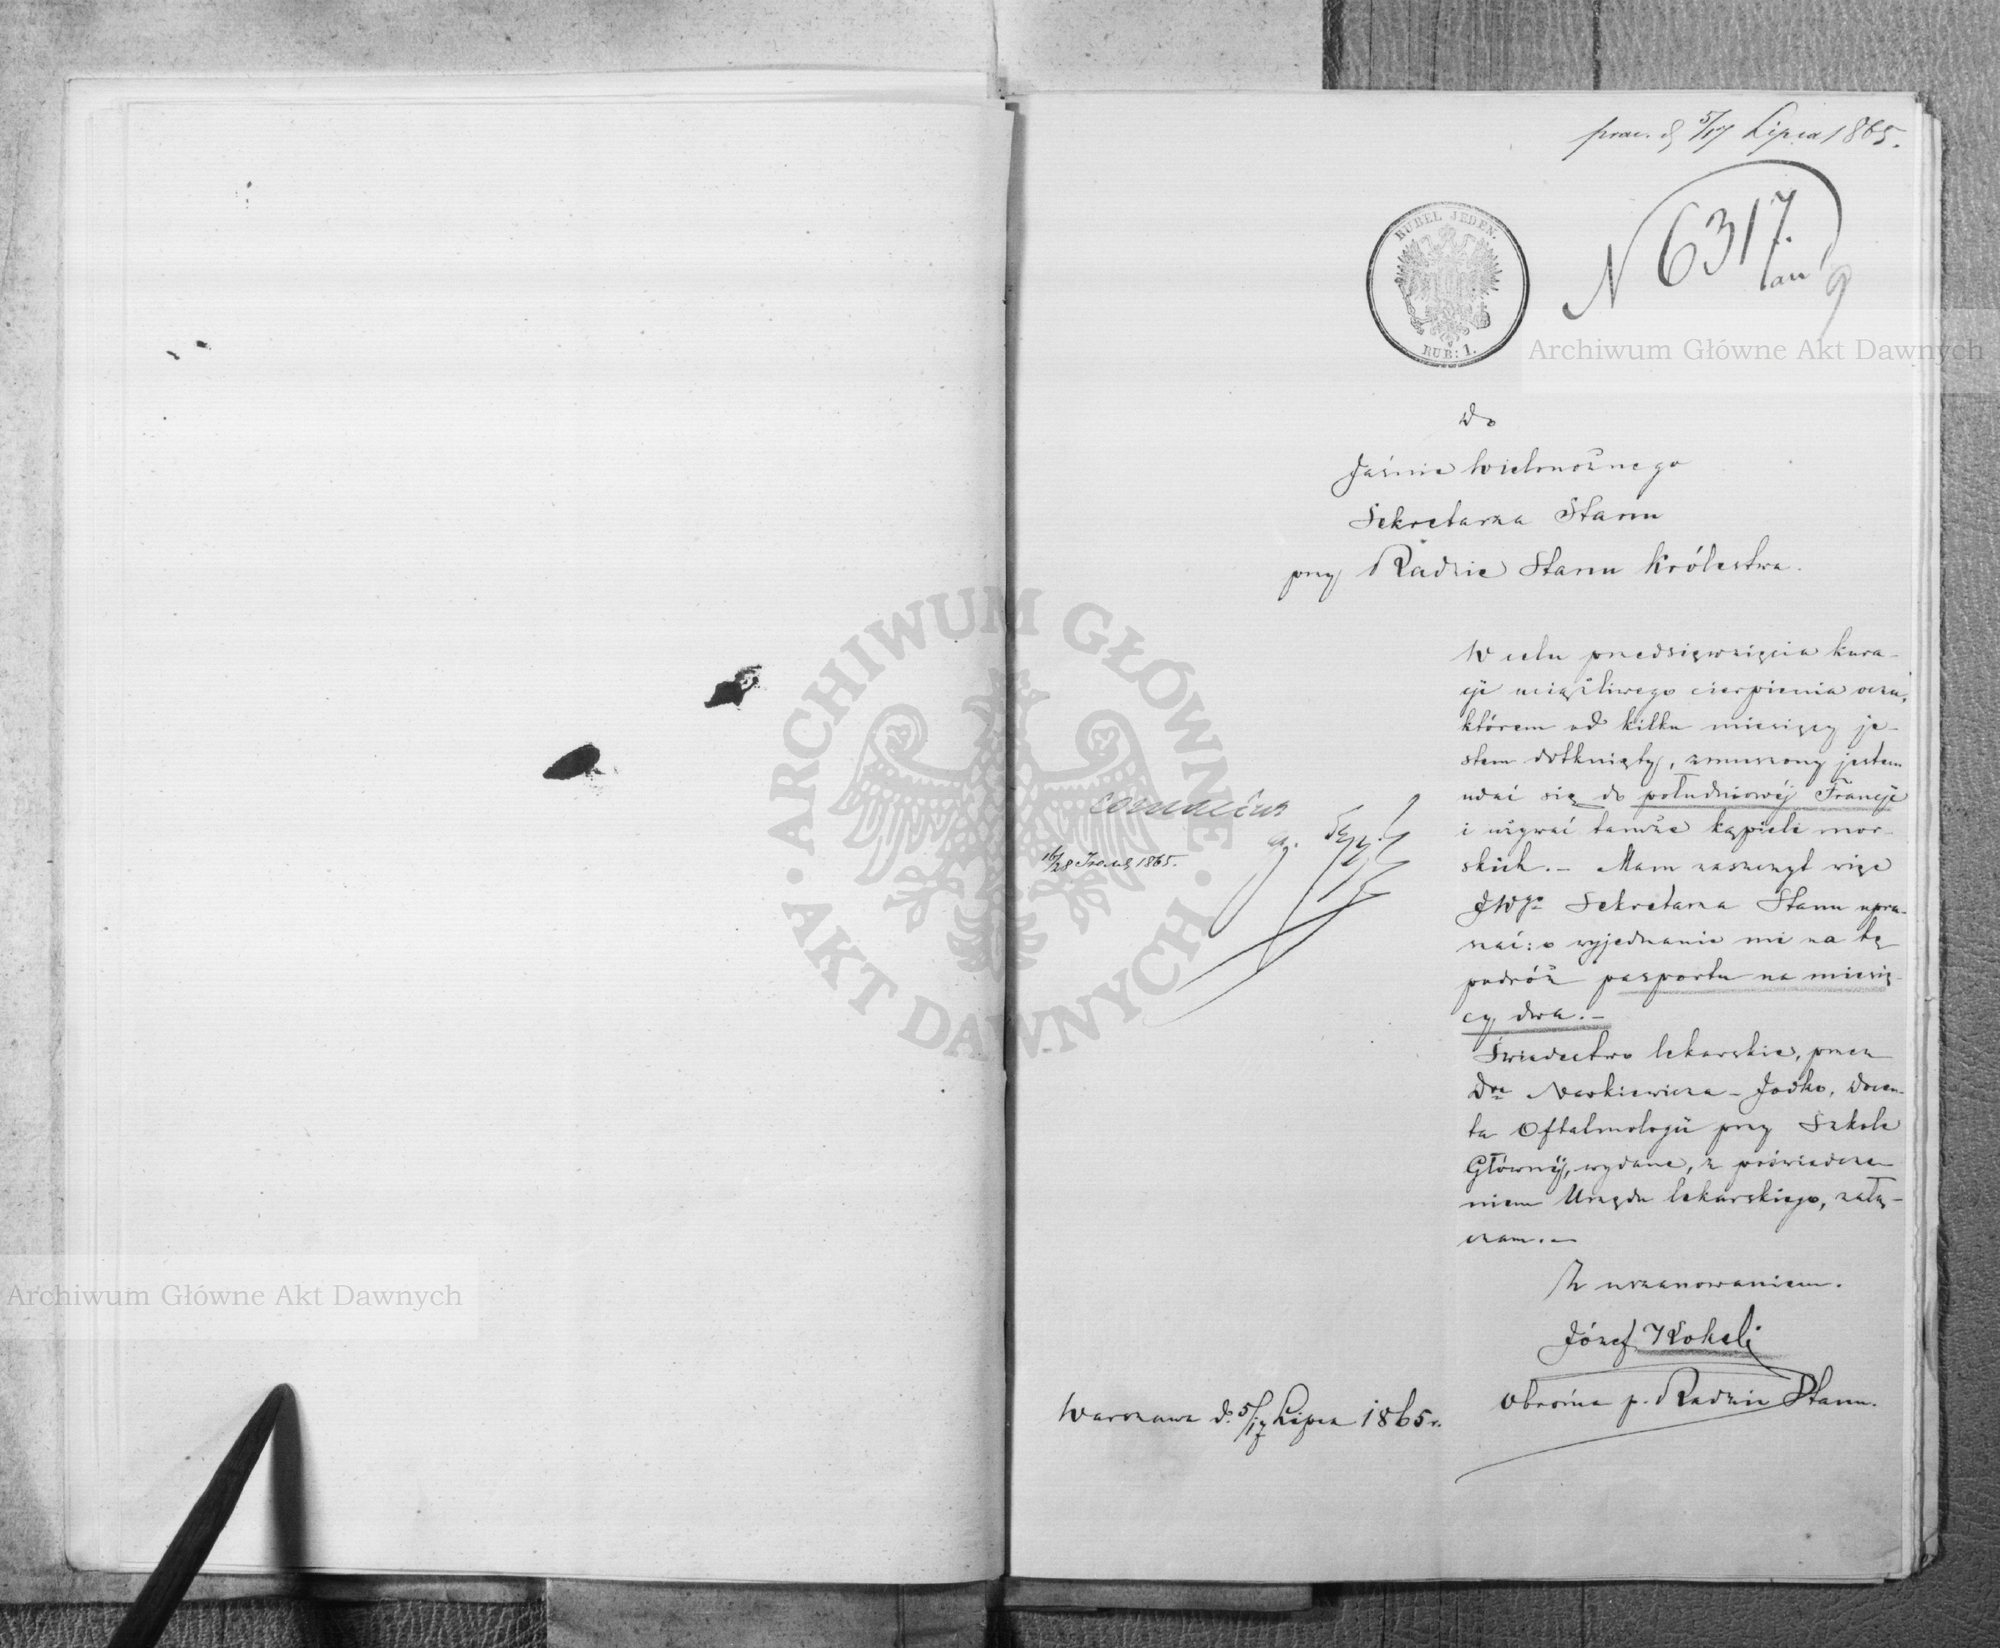 5/17 Lipca 1865.
N 6317.
9
RUBEL JEDEN.
RUB: 1.
Do
Jaśnie Wielmożnego
Sekretarza Stanu
przy Radzie Stanu Królestwa.
W celu przedsięwzięcia kura-
cji uciążliwego cierpienia oczu,
którem od kilku miesięcy je-
stem dotknięty, zmuszony jestem
udać się do południowéj Francji
i używać tamże kąpieli mor-
skich. – Mam zaszczyt więc
JWgo Sekretarza Stanu upra-
szać: o wyjednanie mi na tę
podróż pasportu na miesię-
cy dwa. –
Świadectwo lekarskie, przez
Dra Narkiewicza – Jodko, Docen-
ta Oftalmologii przy Szkole
Głównéj, wydane, z poświadcze-
niem Urzędu lekarskiego, załą-
czam. –
Z uszanowaniem.
Józef Kokeli
Obrońca p. Radzie Stanu.
Warszawa d. 5/17 Lipca 1865 r.
16/28 1865.
Archiwum Główne Akt Dawnych
ARCHIWUM GŁÓWNE AKT DAWNYCH
Archiwum Główne Akt Dawnych